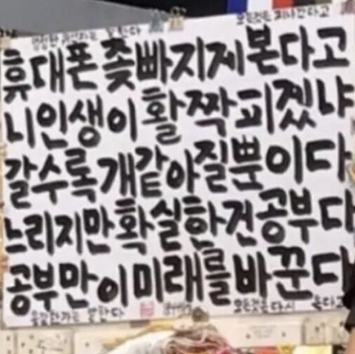 휴대폰 좆빠지게 본다고
니인생이 활짝 피겠냐
갈수록 개같아질뿐이다
느리지만 확실한건 공부다
공부만이 미래를 바꾼다